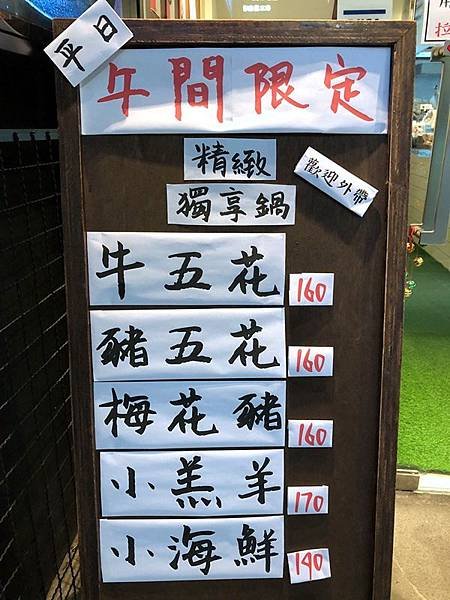 平日
午間限定
精緻
歡迎外帶
獨享鍋
牛五花 160
豬五花 160
梅花豬 160
小羔羊 170
小海鮮 140